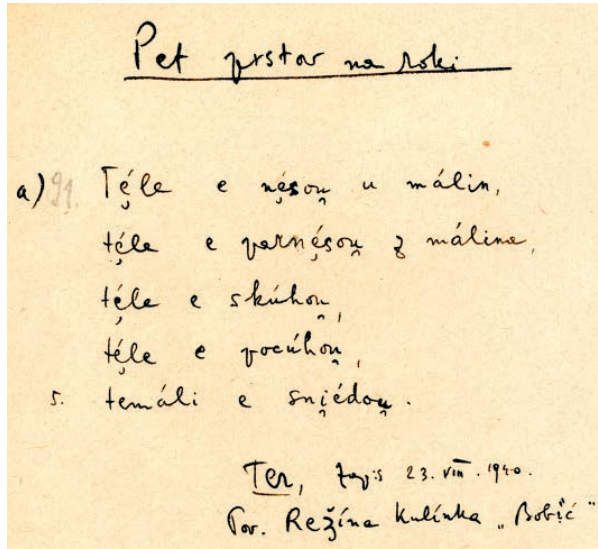 Pet prstov na roki
a) 91. Tẹ́le e nẹ́sou̯ u málin,
tẹ́le e parnẹ́sou̯ z málina,
tẹ́le e skúhou̯,
tẹ́le e pocúhou̯,
5. temáli e sni̯édou̯.
Ter, zapis 23. VIII. 1940.
Pov. Režína Kulínka „Bobić“